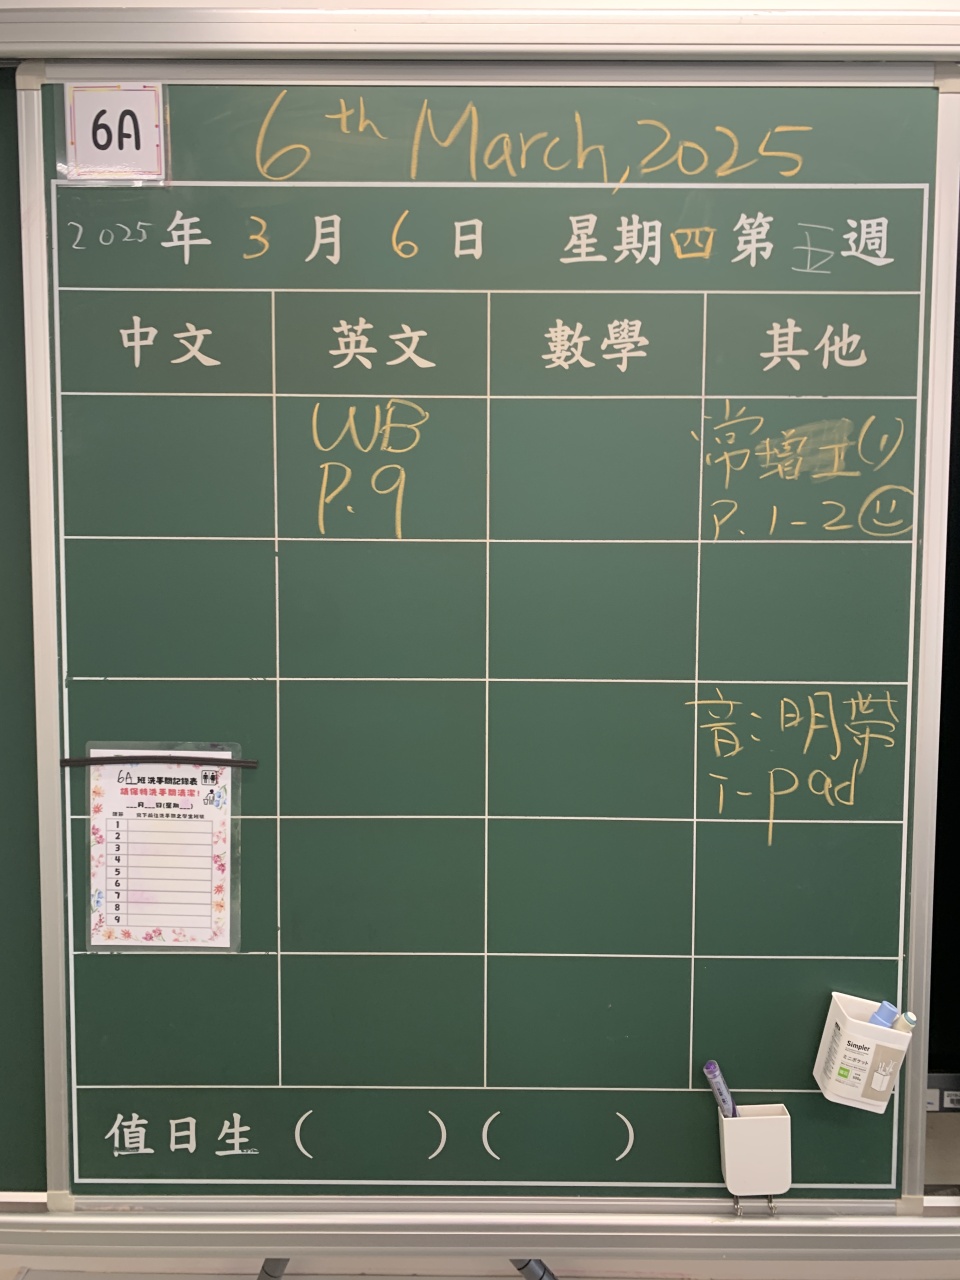 6A
6th March, 2025
2025年 3月 6日 星期四 第五週
中文 英文 數學 其他
WB
P.9
常增工(1)
P. 1-2
音：明帶
i-pad
6A班洗手間記錄表
請保持洗手間清潔！
___月___日(星期___)
1
2
3
4
5
6
7
8
9
Simpler
ミニポケット
值日生 ( ) ( )